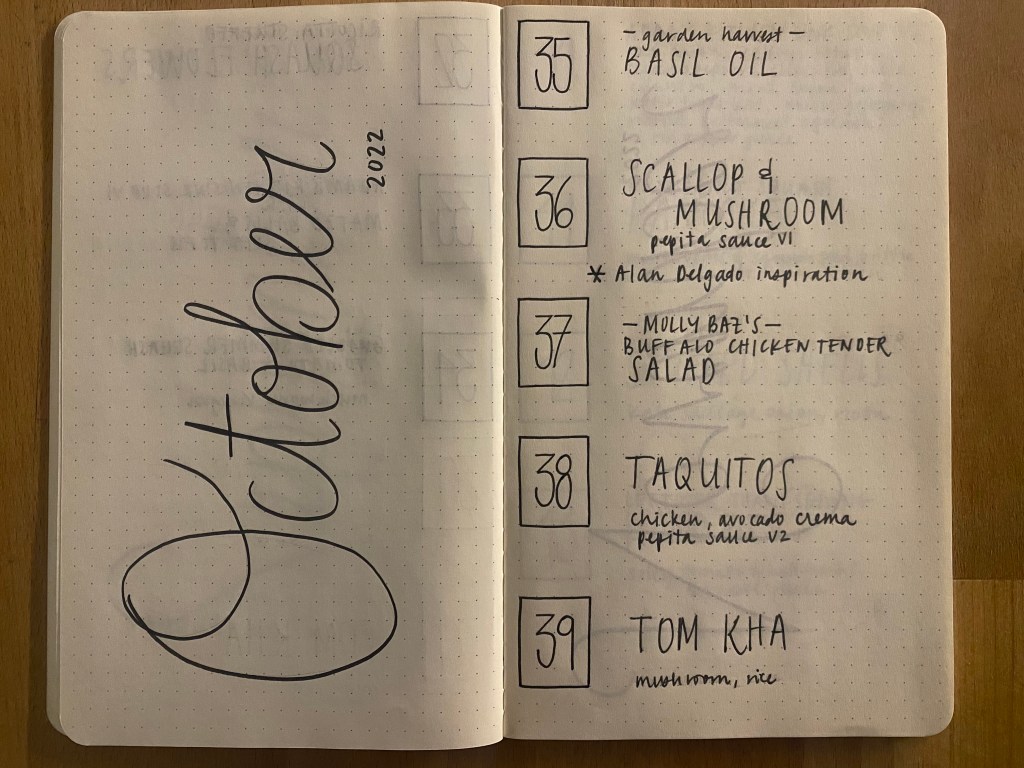 October
2022
35
- garden harvest -
BASIL OIL
36
SCALLOP &
MUSHROOM
pepita sauce V1
* Alan Delgado inspiration
37
- MOLLY BAZ'S -
BUFFALO CHICKEN TENDER
SALAD
38
TAQUITOS
chicken, avocado crema
pepita sauce V2
39
TOM KHA
mushroom, rice